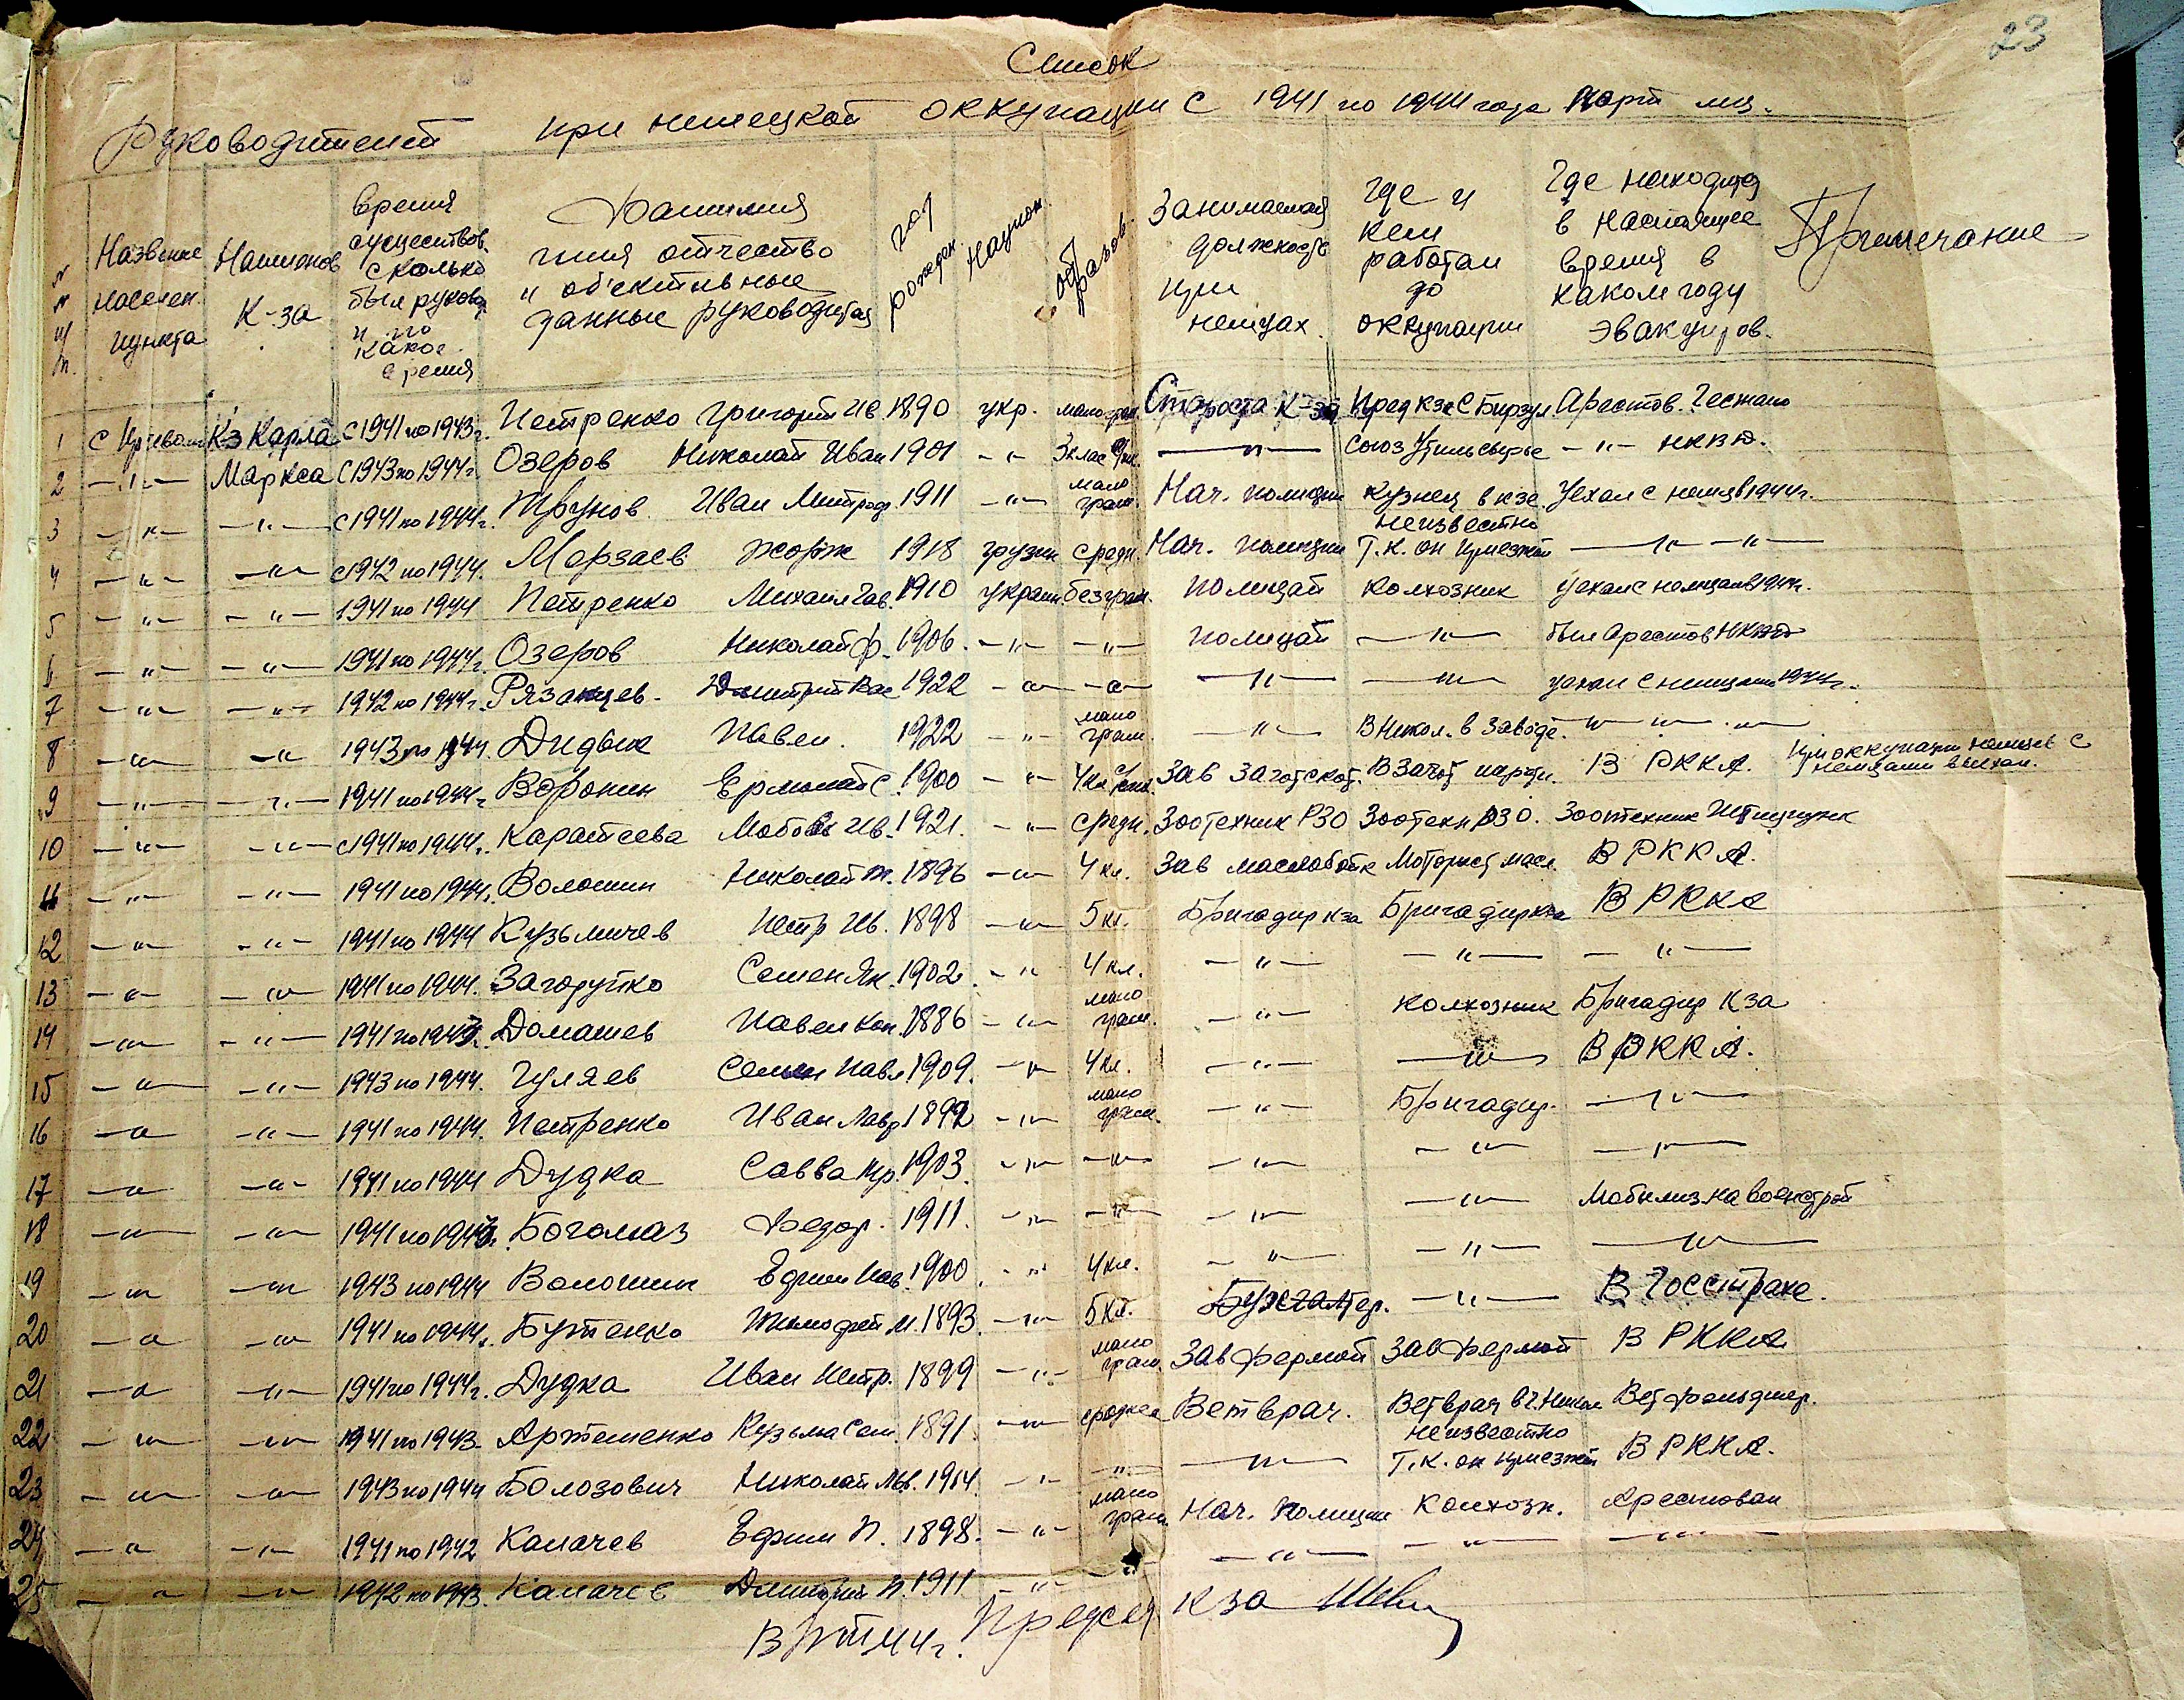 23
Список
Руководителей при немецкой оккупации с 1941 по 1944 года март м-ц.
№ № п/п. Название населен. пункта Наименов К-за Время существов. сколько был руковод и по какое время Фамилия имя отчество и об'ективные данные руководителя год рожден. Национ. образов. Занимаемая должность при немцах. Где и кем работал до оккупации Где находится в настоящее время в каком году эвакуиров. Примечание
1 с Кз Карла с 1941 по 1943г. Петренко Григорий Ив 1890 укр. малограм. Староста К-за Пред кза С Бирзул Арестов. Гестапо
2 —"— Маркса с 1943 по 1944г. Озеров Николай Иван 1901 —"— 3 клас —"— Союз Утильсырье —"— НКВД.
3 —"— —"— с 1941 по 1944г. Иван Митроф 1911 —"— мало грам. Нач. полиции кузнец в кзе. Уехал с немц в 1944г.
4 —"— —"— с 1942 по 1944. Марзаев Жорж 1918 грузин средн. Нач. полиции неизвестно т.к. он приезжий —"— —"—
5 —"— —"— 1941 по 1944 Петренко Михаил Гав. 1910 украин безграм. полицай колхозник уехал с немцами 1944г.
6 —"— —"— 1941 по 1944г. Озеров Николай Ф. 1906. —"— —"— полицай —"— был Арестов НКВД
7 —"— —"— 1942 по 1944г. Рязанцев. Дмитрий Вас. 1922 —"— —"— —"— —"— уехал с немцами 1944г.
8 —"— —"— 1943 по 1944. Дидык Павел. 1922 —"— мало грам. —"— В Никол. в заводе. —"— —"— —"—
9 —"— —"— 1941 по 1944г. Воронин Ермолай С. 1900 —"— 4кл Зав Заготскот. В Загот В РККА. При оккупации немцев с немцами выехал.
10 —"— —"— с 1941 по 1944г. Каратеева Любовь Ив. 1921. —"— средн. Зоотехник РЗО Зоотехн РЗО. Зоотехник
11 —"— —"— 1941 по 1944г. Волошин Николай Т. 1896 —"— 4 кл. Зав маслобойк Моторист масл. В РККА.
12 —"— —"— 1941 по 1944 Кузьмичев Петр Ив. 1898 —"— 5 кл. Бригадир кза Бригадир кза В РККА
13 —"— —"— 1941 по 1944. Загорулко Семен Як. 1902. —"— 4 кл. —"— —"— —"—
14 —"— —"— 1941 по 1943г. Домашев Павел Кон. 1886 —"— мало грам. —"— колхозник Бригадир К за
15 —"— —"— 1943 по 1944. Гуляев Семен Павл 1909. —"— 4 кл. —"— —"— В РККА.
16 —"— —"— 1941 по 1944. Петренко Иван Лавр 1892 —"— мало грам. —"— Бригадир. —"—
17 —"— —"— 1941 по 1944 Дудка Савва Пр. 1903. —"— —"— —"— —"— —"—
18 —"— —"— 1941 по 1943г. Богомаз Федор. 1911. —"— —"— —"— —"— Мобилиз. на воен строй
19 —"— —"— 1943 по 1944 Волошин Ефим Пав. 1900. —"— 4 кл. —"— —"— —"—
20 —"— —"— 1941 по 1944г. Бутенко Тимофей М. 1893. —"— 5 кл. Бухгалтер. —"— В Госстрахе.
21 —"— —"— 1941 по 1944г. Дудка Иван Петр. 1899 —"— мало грам. Зав фермой Зав фермой В РККА
22 —"— —"— 1941 по 1943. Артеменко Кузьма Сем. 1891. —"— среднее Ветврач. Ветврач в г. Никол Вет фельдшер.
23 —"— —"— 1943 по 1944 Болозович Николай Льв. 1914. —"— —"— —"— неизвестно т.к. он приезжий В РККА.
24 —"— —"— 1941 по 1942 Калачев Ефим П. 1898. —"— мало грам. Нач. полиции Колхозн. Арестован
25 —"— —"— 1942 по 1943. Калачев Дмитрий П. 1911 —"— —"— —"— —"—
Председ кза